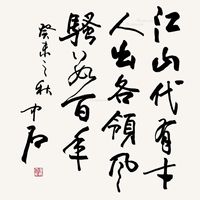 江山代有才
人出各領風
騷数百年
癸未之秋 中石